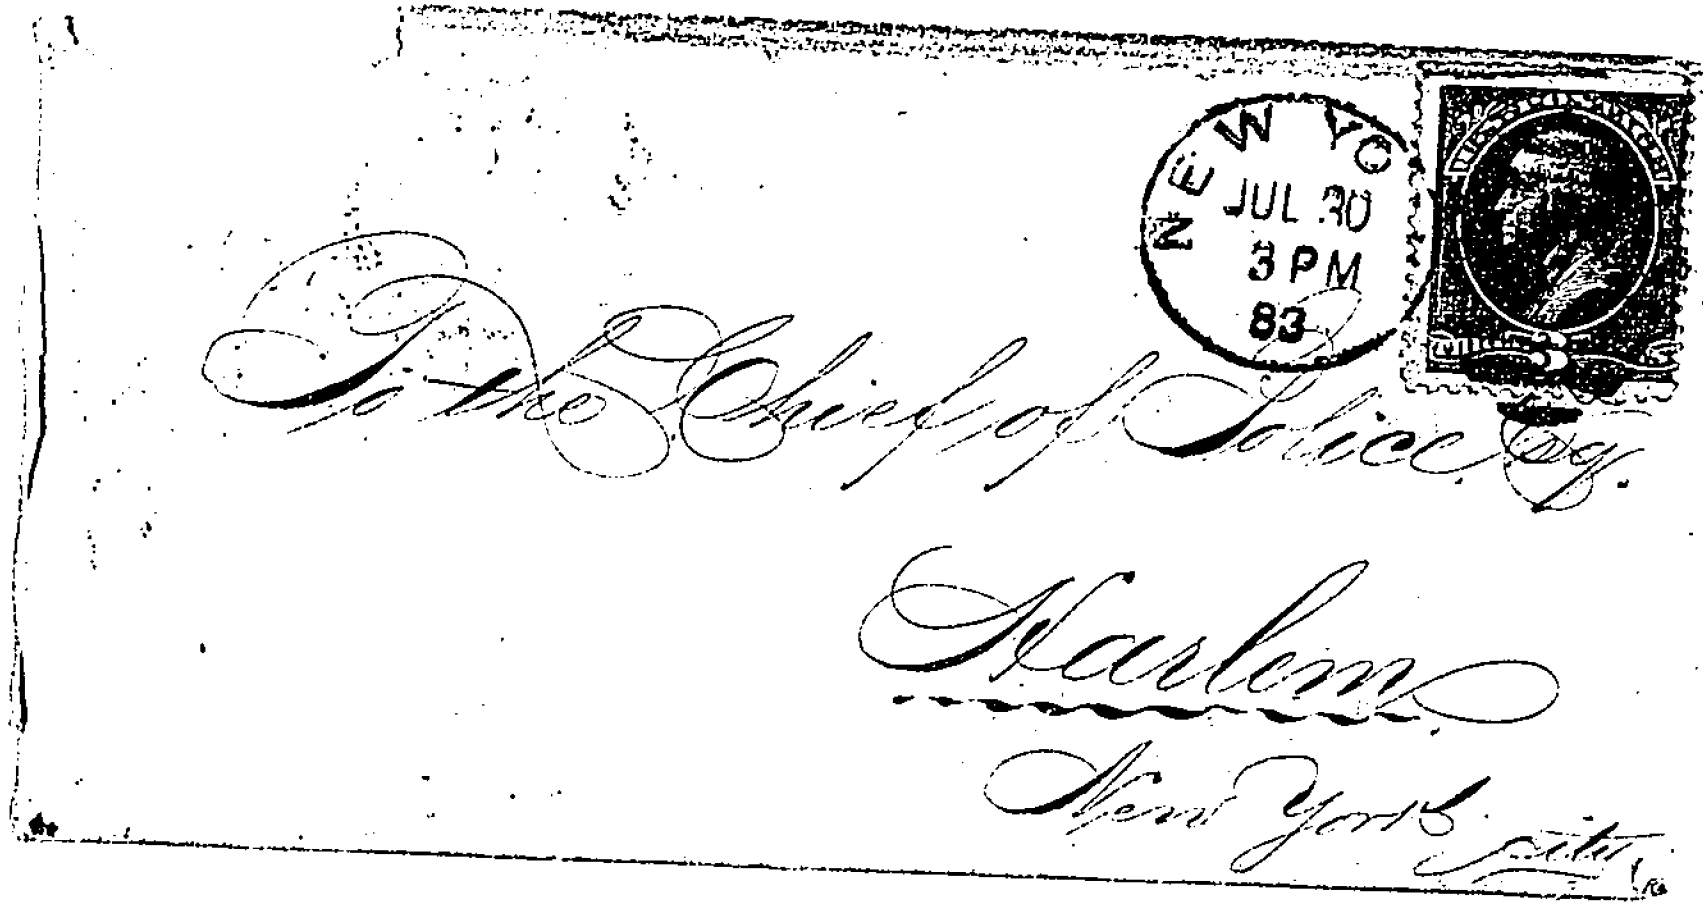 NEW YO
JUL 30
3 PM
83
To the Chief of Police, Esq.
Harlem.
New York City.